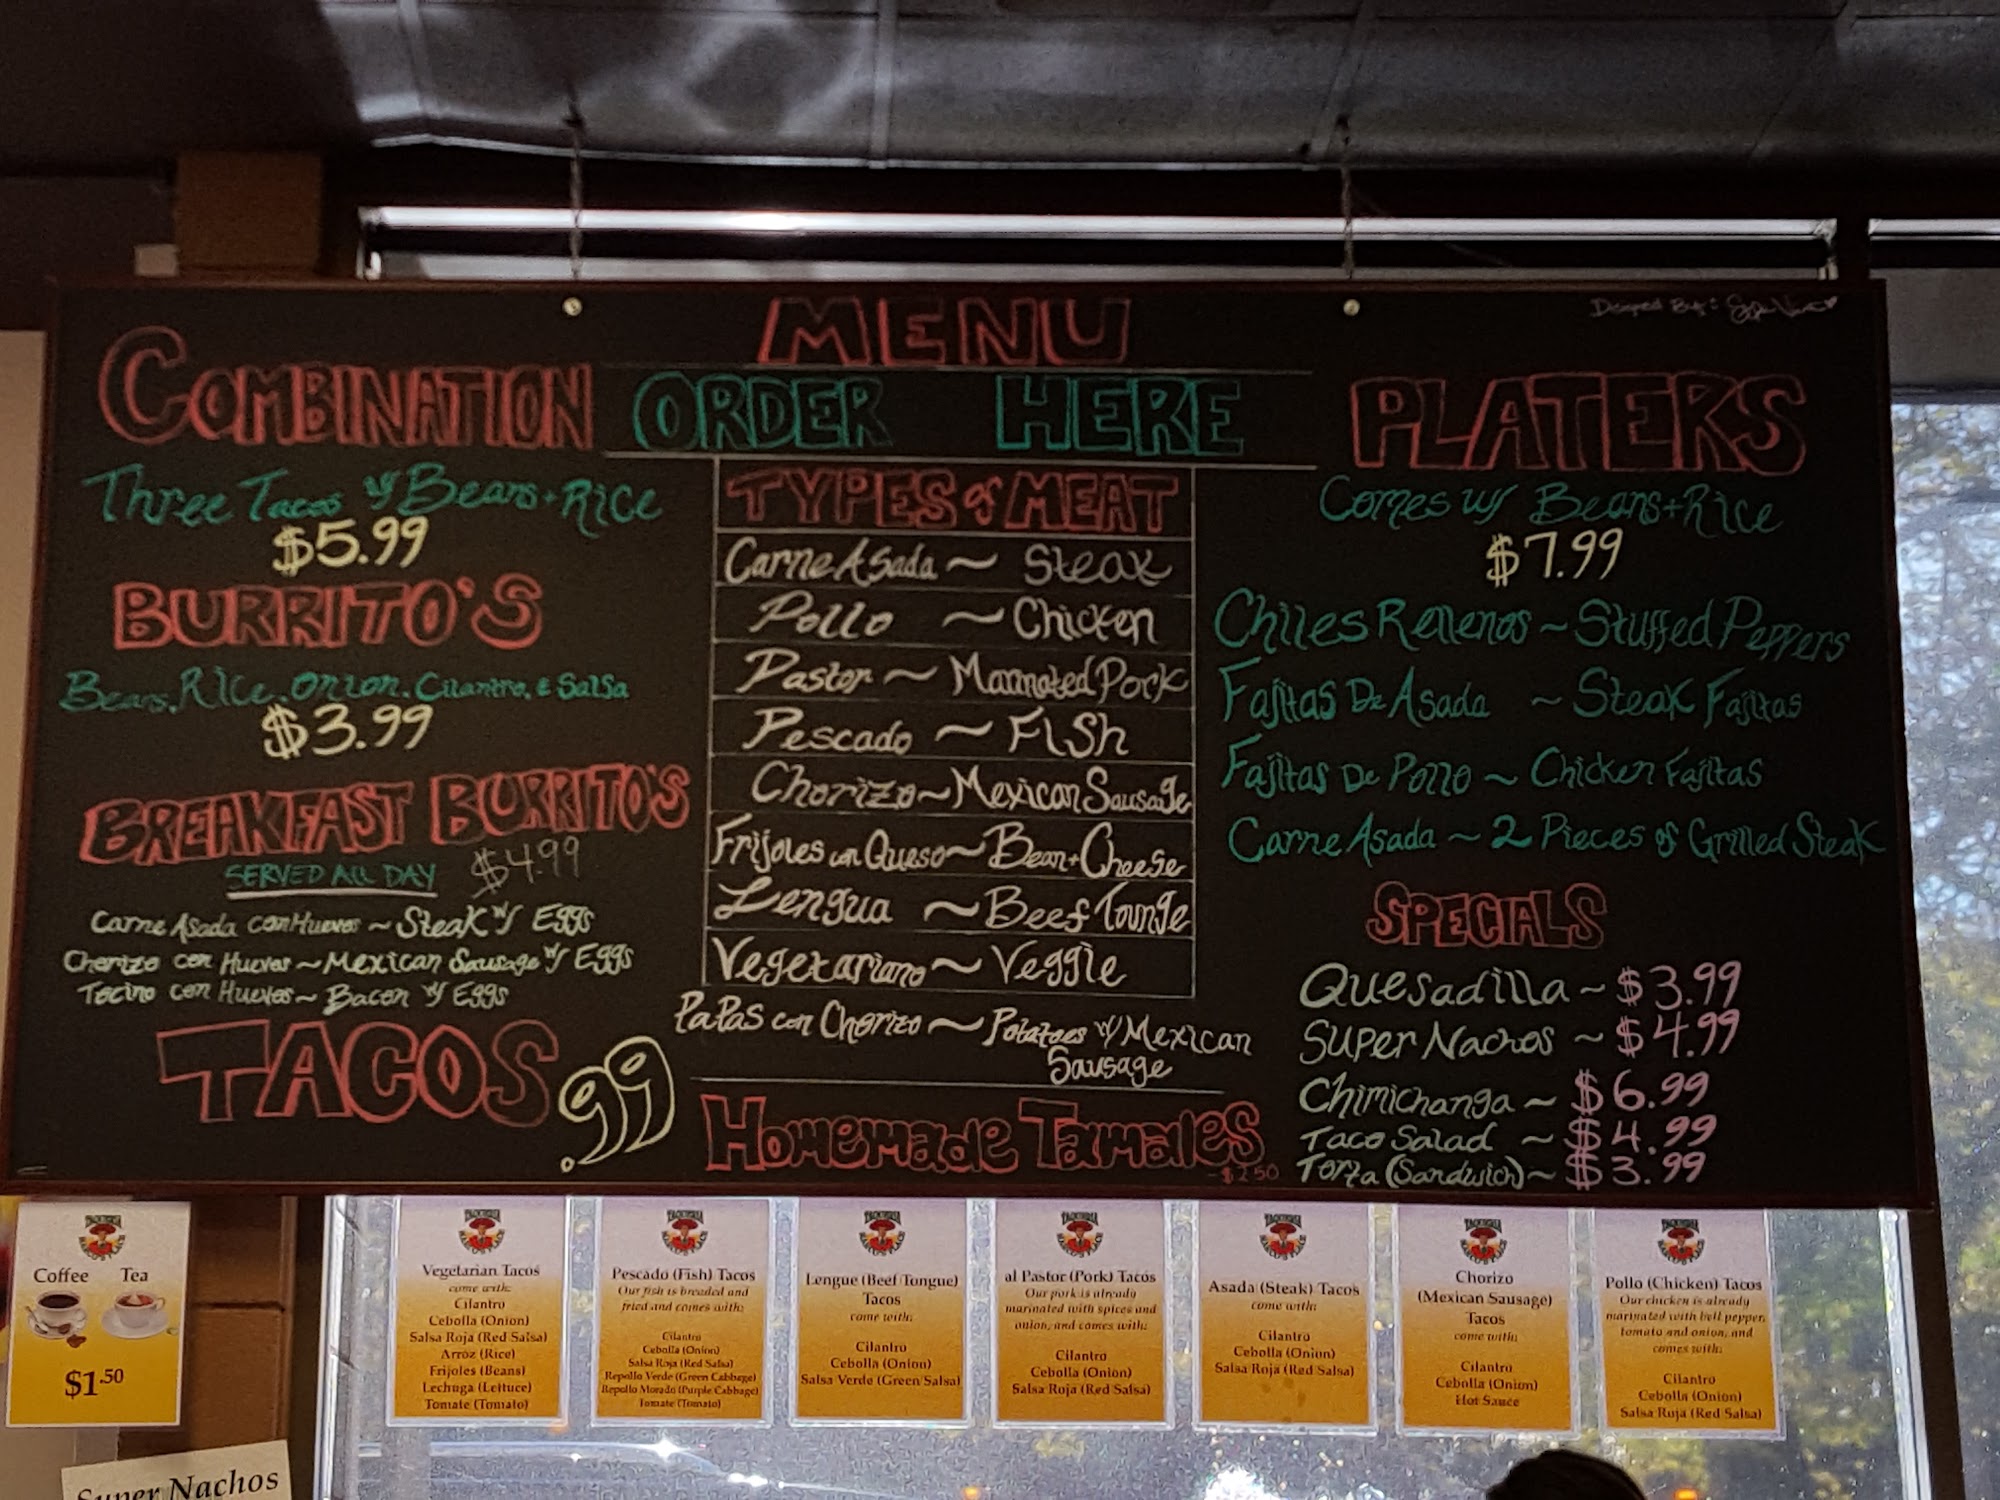 MENU
ORDER HERE
COMBINATION
Three Tacos w/ Beans + Rice
$5.99
BURRITO'S
Beans, Rice, Onion, Cilantro, & Salsa
$3.99
BREAKFAST BURRITO'S
SERVED ALL DAY $4.99
Carne Asada con Huevos ~ Steak w/ Eggs
Chorizo con Huevos ~ Mexican Sausage w/ Eggs
Tocino con Huevos ~ Bacon w/ Eggs
TACOS .99
TYPES of MEAT
Carne Asada ~ Steak
Pollo ~ Chicken
Pastor ~ Marinated Pork
Pescado ~ Fish
Chorizo ~ Mexican Sausage
Frijoles con Queso ~ Bean + Cheese
Lengua ~ Beef Tounge
Vegetariano ~ Veggie
Papas con Chorizo ~ Potatoes w/ Mexican
Sausage
Homemade Tamales
~ $2.50
Designed By:
PLATERS
Comes w/ Beans + Rice
$7.99
Chiles Rellenos ~ Stuffed Peppers
Fajitas De Asada ~ Steak Fajitas
Fajitas De Pollo ~ Chicken Fajitas
Carne Asada ~ 2 Pieces of Grilled Steak
SPECIALS
Quesadilla ~ $3.99
Super Nachos ~ $4.99
Chimichanga ~ $6.99
Taco Salad ~ $4.99
Torta (Sandwich) ~ $3.99
Coffee Tea
$1.50
Super Nachos
Vegetarian Tacos
come with:
Cilantro
Cebolla (Onion)
Salsa Roja (Red Salsa)
Arroz (Rice)
Frijoles (Beans)
Lechuga (Lettuce)
Tomate (Tomato)
Pescado (Fish) Tacos
Our fish is breaded and
fried and comes with:
Cilantro
Cebolla (Onion)
Salsa Roja (Red Salsa)
Repollo Verde (Green Cabbage)
Repollo Morado (Purple Cabbage)
Tomate (Tomato)
Lengue (Beef Tongue)
Tacos
come with:
Cilantro
Cebolla (Onion)
Salsa Verde (Green Salsa)
al Pastor (Pork) Tacos
Our pork is already
marinated with spices and
onion, and comes with:
Cilantro
Cebolla (Onion)
Salsa Roja (Red Salsa)
Asada (Steak) Tacos
come with:
Cilantro
Cebolla (Onion)
Salsa Roja (Red Salsa)
Chorizo
(Mexican Sausage)
Tacos
come with:
Cilantro
Cebolla (Onion)
Hot Sauce
Pollo (Chicken) Tacos
Our chicken is already
marinated with bell pepper,
tomato and onion, and
comes with:
Cilantro
Cebolla (Onion)
Salsa Roja (Red Salsa)